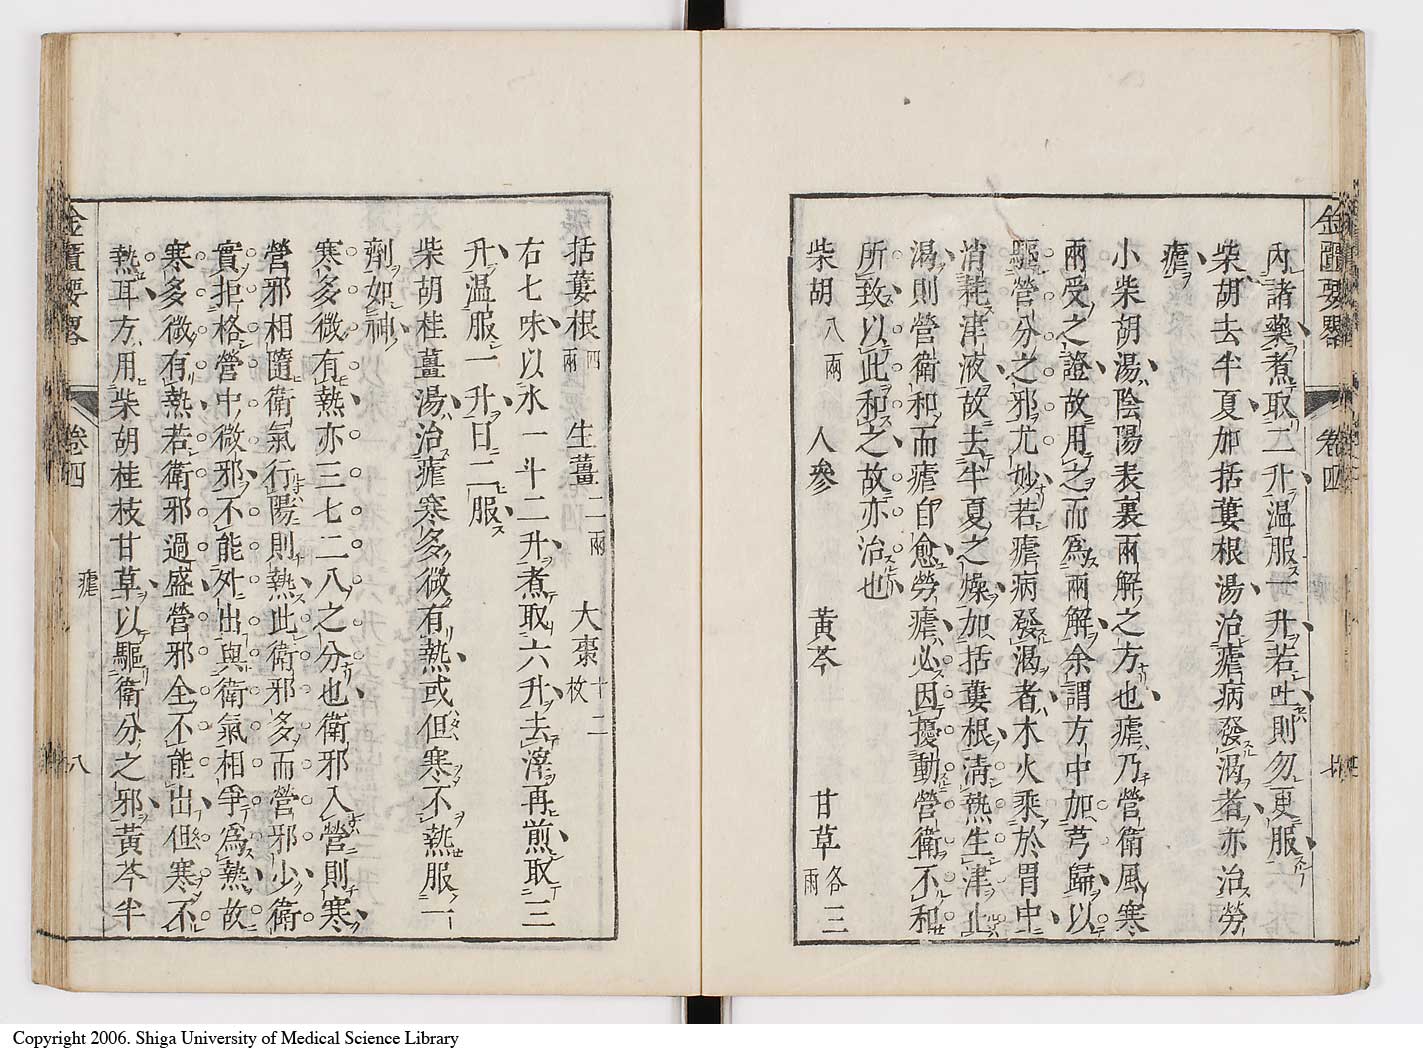 金匱要畧 卷四
內諸藥煮取二升温服一升若吐則勿更服
柴胡去半夏加括蔞根湯治瘧病發渴者亦治勞
瘧
小柴胡湯陰陽表裏兩解之方也瘧乃營衛風寒
兩受之證故用之而為兩解余謂方中加芎歸以
驅營分之邪尤妙若瘧病發渴者木火乘於胃中
消耗津液故去半夏之燥加括蔞根清熱生津止
渴則營衛和而瘧自愈勞瘧必因擾動營衛不和
所致以此和之故亦治也
柴胡八兩 人參 黃芩 甘草各三兩
括蔞根四兩 生薑二兩 大棗十二枚
右七味以水一斗二升煮取六升去滓再煎取三
升温服一升日二服
柴胡桂薑湯治瘧寒多微有熱或但寒不熱服一
劑如神
寒多微有熱亦三七二八之分也衛邪入營則寒
營邪相隨衛氣行陽則熱此衛邪多而營邪少衛
實拒格營中微邪不能外出與衛氣相爭為熱故
寒多微有熱若衛邪過盛營邪全不能出但寒不
熱耳方用柴胡桂枝甘草以驅衛分之邪黃芩半
金匱要畧 卷四 瘧 八
Copyright 2006. Shiga University of Medical Science Library